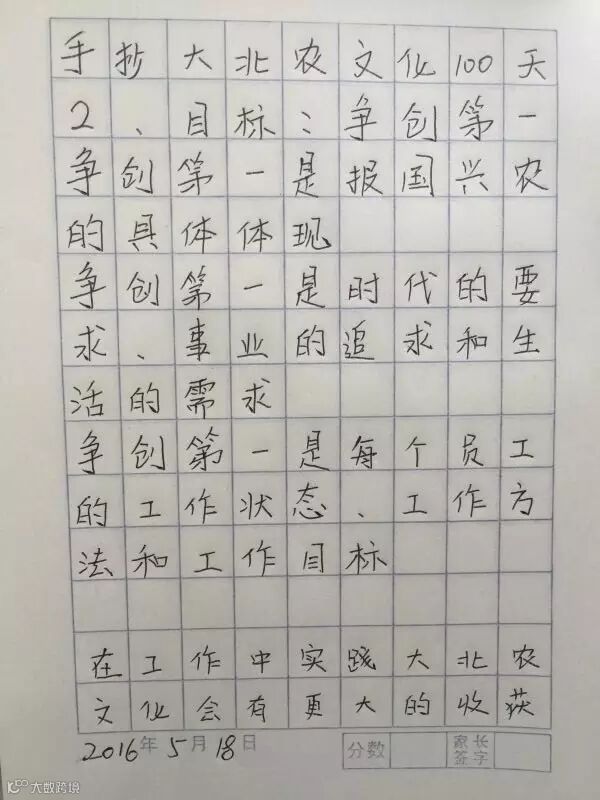 手抄大北农文化100天
2、目标：争创第一
争创第一是报国兴农
的具体体现
争创第一是时代的要
求、事业的追求和生
活的需求
争创第一是每个员工
的工作状态、工作方
法和工作目标
在工作中实践大北农
文化会有更大的收获
2016年5月18日 分数 家长签字
大数跨境